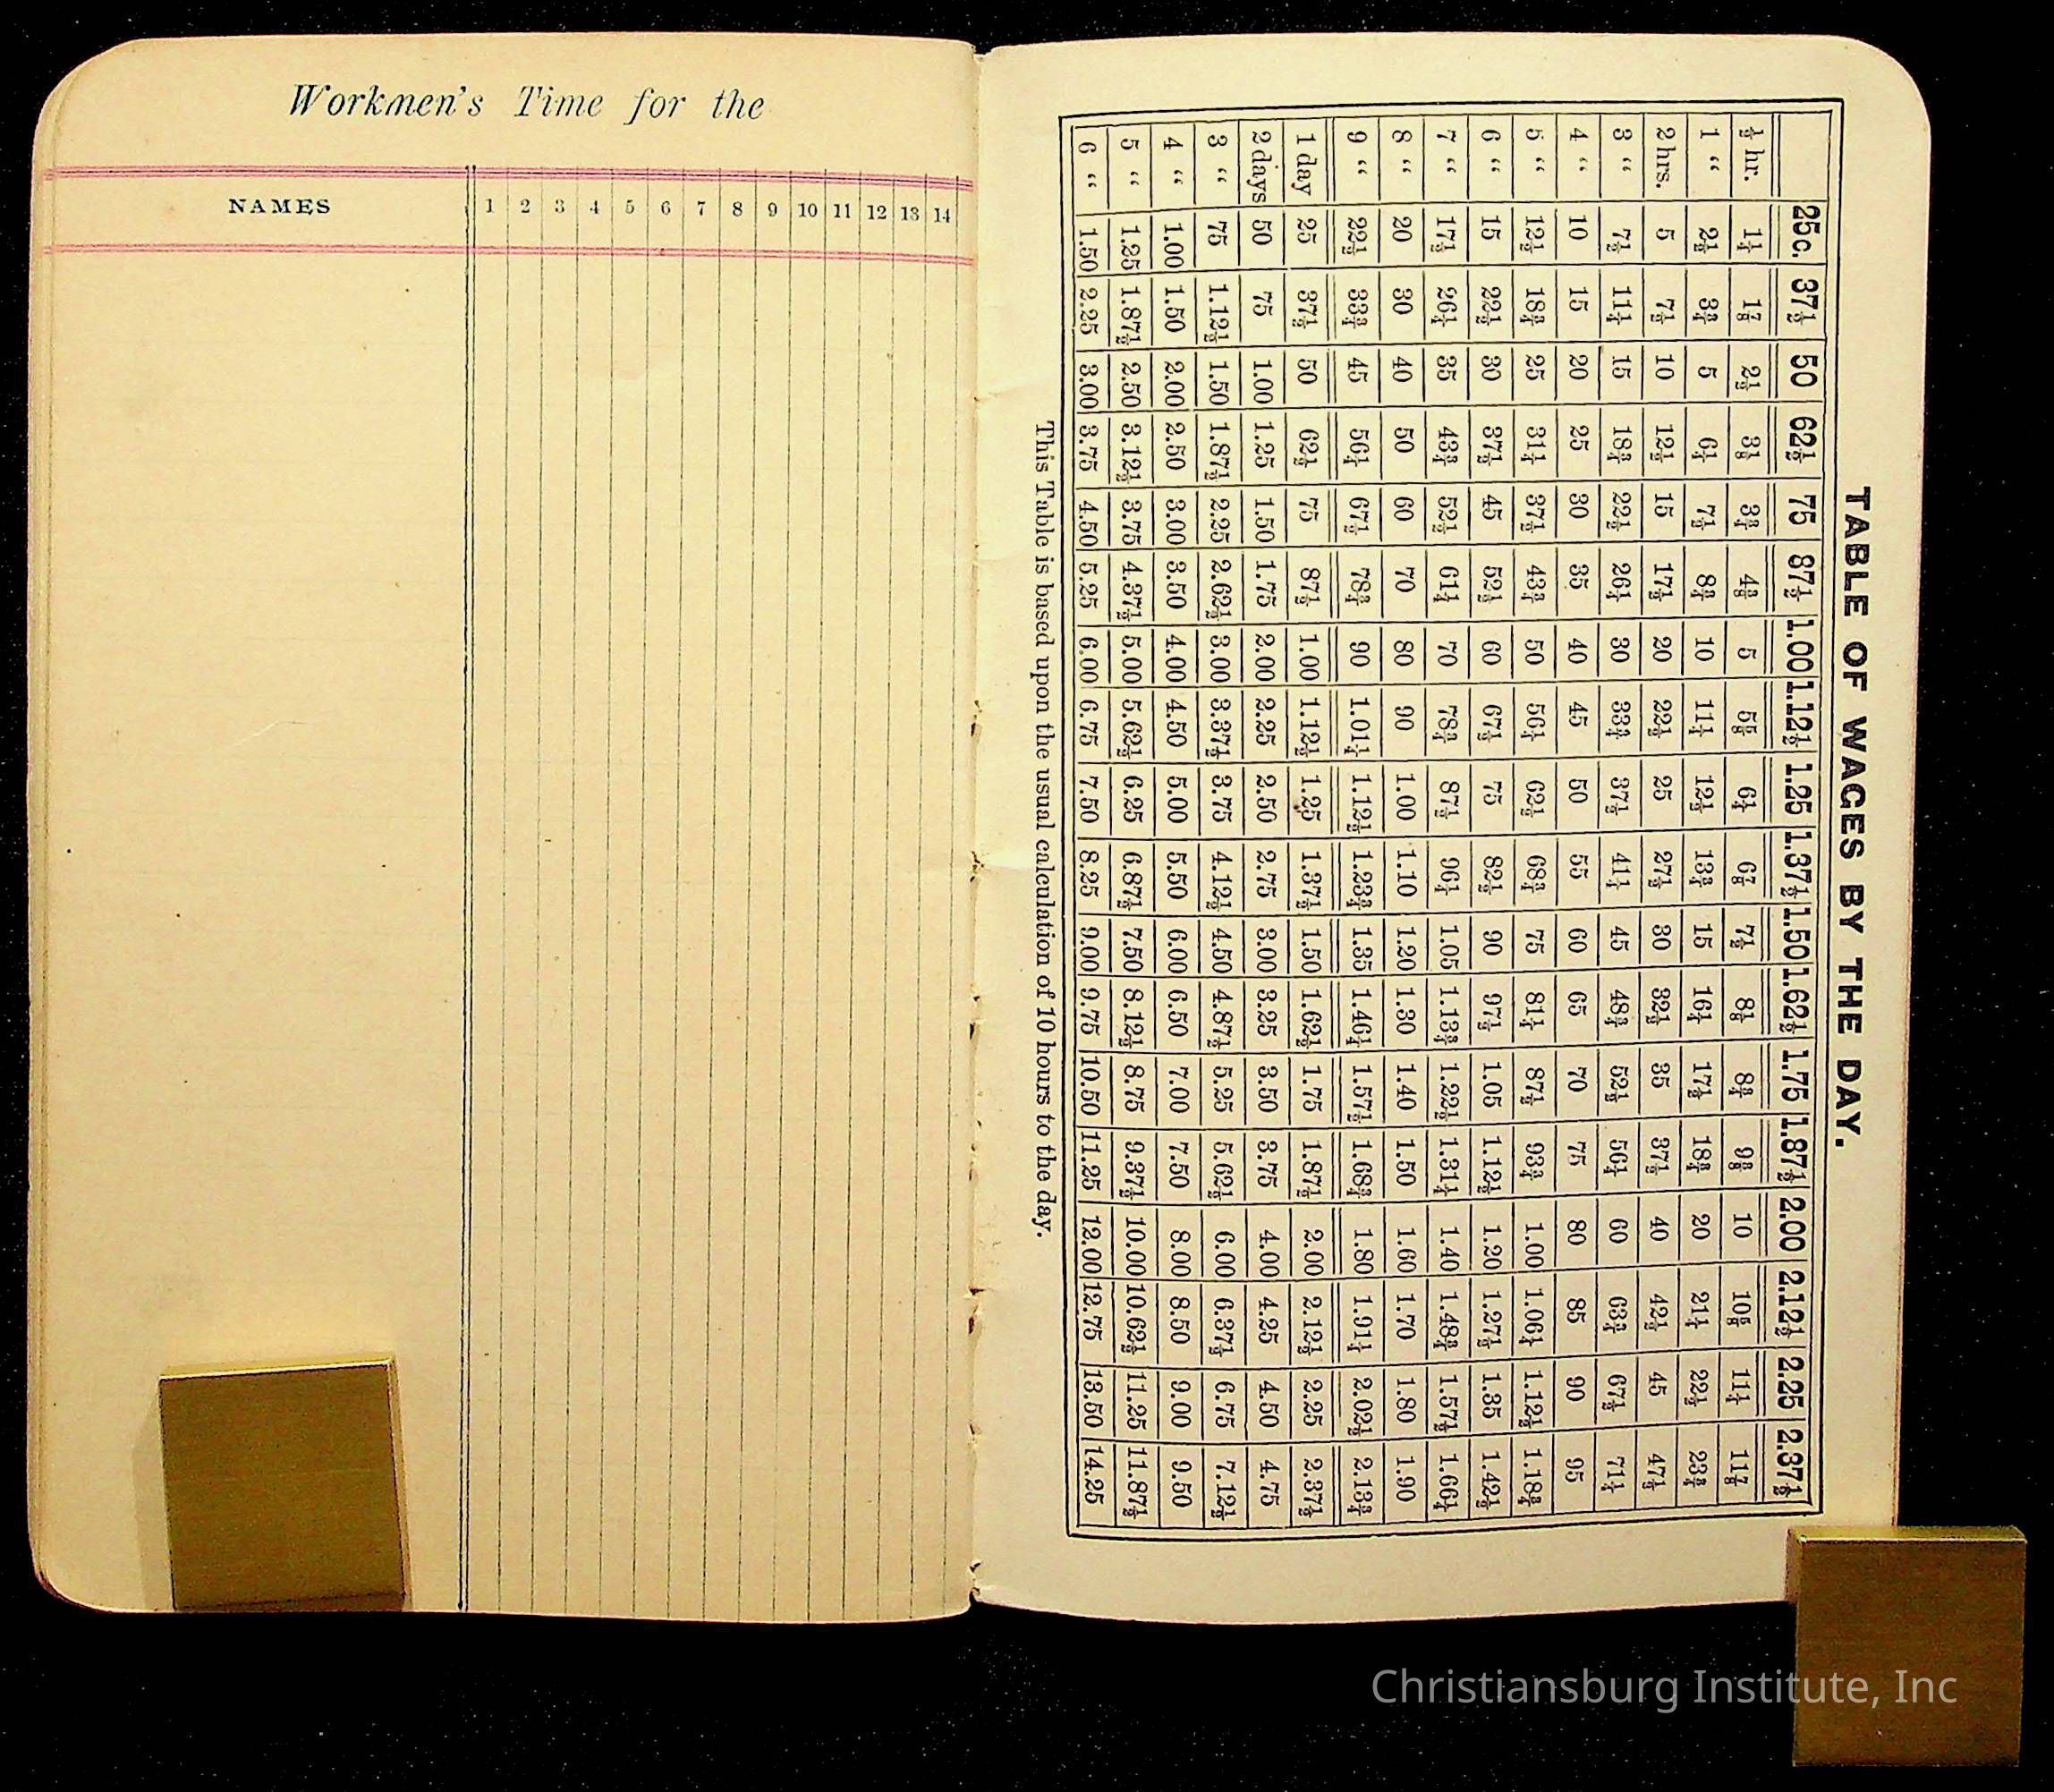 Workmen's Time for the
NAMES 1 2 3 4 5 6 7 8 9 10 11 12 13 14
TABLE OF WAGES BY THE DAY.
25c. 37½ 50 62½ 75 87½ 1.00 1.12½ 1.25 1.37½ 1.50 1.62½ 1.75 1.87½ 2.00 2.12½ 2.25 2.37½
½ hr. 1¼ 1⅞ 2½ 3⅛ 3¾ 4⅜ 5 5⅝ 6¼ 6⅞ 7½ 8⅛ 8¾ 9⅜ 10 10⅝ 11¼ 11⅞
1 “ 2½ 3¾ 5 6¼ 7½ 8¾ 10 11¼ 12½ 13¾ 15 16¼ 17½ 18¾ 20 21¼ 22½ 23¾
2 hrs. 5 7½ 10 12½ 15 17½ 20 22½ 25 27½ 30 32½ 35 37½ 40 42½ 45 47½
3 “ 7½ 11¼ 15 18¾ 22½ 26¼ 30 33¾ 37½ 41¼ 45 48¾ 52½ 56¼ 60 63¾ 67½ 71¼
4 “ 10 15 20 25 30 35 40 45 50 55 60 65 70 75 80 85 90 95
5 “ 12½ 18¾ 25 31¼ 37½ 43¾ 50 56¼ 62½ 68¾ 75 81¼ 87½ 93¾ 1.00 1.06¼ 1.12½ 1.18¾
6 “ 15 22½ 30 37½ 45 52½ 60 67½ 75 82½ 90 97½ 1.05 1.12½ 1.20 1.27½ 1.35 1.42½
7 “ 17½ 26¼ 35 43¾ 52½ 61¼ 70 78¾ 87½ 96¼ 1.05 1.13¾ 1.22½ 1.31¼ 1.40 1.48¾ 1.57½ 1.66¼
8 “ 20 30 40 50 60 70 80 90 1.00 1.10 1.20 1.30 1.40 1.50 1.60 1.70 1.80 1.90
9 “ 22½ 33¾ 45 56¼ 67½ 78¾ 90 1.01¼ 1.12½ 1.23¾ 1.35 1.46¼ 1.57½ 1.68¾ 1.80 1.91¼ 2.02½ 2.13¾
1 day 25 37½ 50 62½ 75 87½ 1.00 1.12½ 1.25 1.37½ 1.50 1.62½ 1.75 1.87½ 2.00 2.12½ 2.25 2.37½
2 days 50 75 1.00 1.25 1.50 1.75 2.00 2.25 2.50 2.75 3.00 3.25 3.50 3.75 4.00 4.25 4.50 4.75
3 “ 75 1.12½ 1.50 1.87½ 2.25 2.62½ 3.00 3.37½ 3.75 4.12½ 4.50 4.87½ 5.25 5.62½ 6.00 6.37½ 6.75 7.12½
4 “ 1.00 1.50 2.00 2.50 3.00 3.50 4.00 4.50 5.00 5.50 6.00 6.50 7.00 7.50 8.00 8.50 9.00 9.50
5 “ 1.25 1.87½ 2.50 3.12½ 3.75 4.37½ 5.00 5.62½ 6.25 6.87½ 7.50 8.12½ 8.75 9.37½ 10.00 10.62½ 11.25 11.87½
6 “ 1.50 2.25 3.00 3.75 4.50 5.25 6.00 6.75 7.50 8.25 9.00 9.75 10.50 11.25 12.00 12.75 13.50 14.25
This Table is based upon the usual calculation of 10 hours to the day.
Christiansburg Institute, Inc